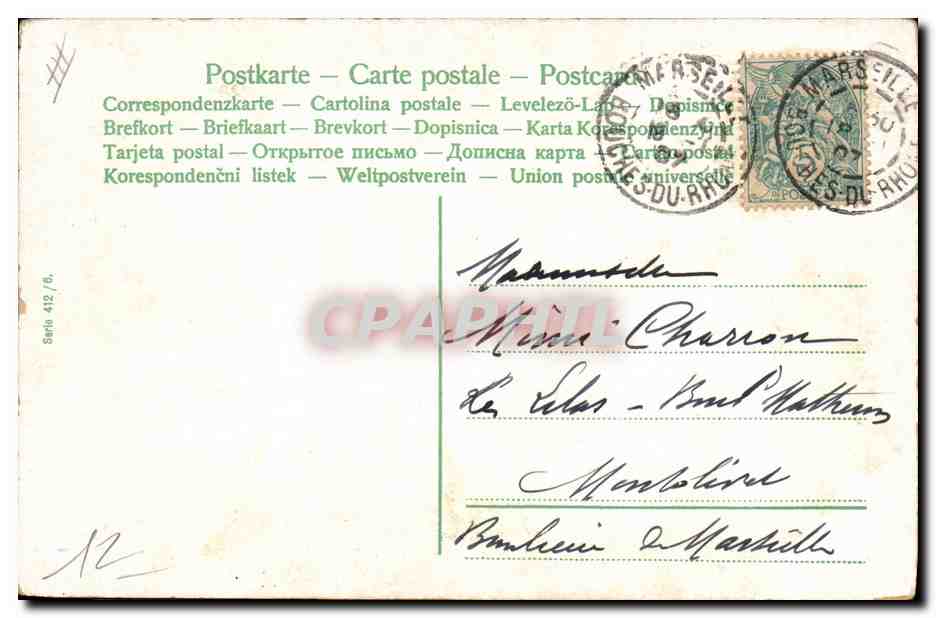 Postkarte – Carte postale – Postcard
Correspondenzkarte – Cartolina postale – Levelező-Lap – Dopisnice
Brefkort – Briefkaart – Brevkort – Dopisnica – Karta Korespondenzyjna
Tarjeta postal – Открытое письмо – Дописна карта – Cartao postal
Korespondenční listek – Weltpostverein – Union postale universelle
MARSEILLE
BOUCHES-DU-RHONE
MARSEILLE
BOUCHES-DU-RHONE
Serie 412/6.
CPAPHIL
Mademoiselle
Mimi Charron
Les Lilas – Boul^d
Montolivet
Banlieue de Marseille
12